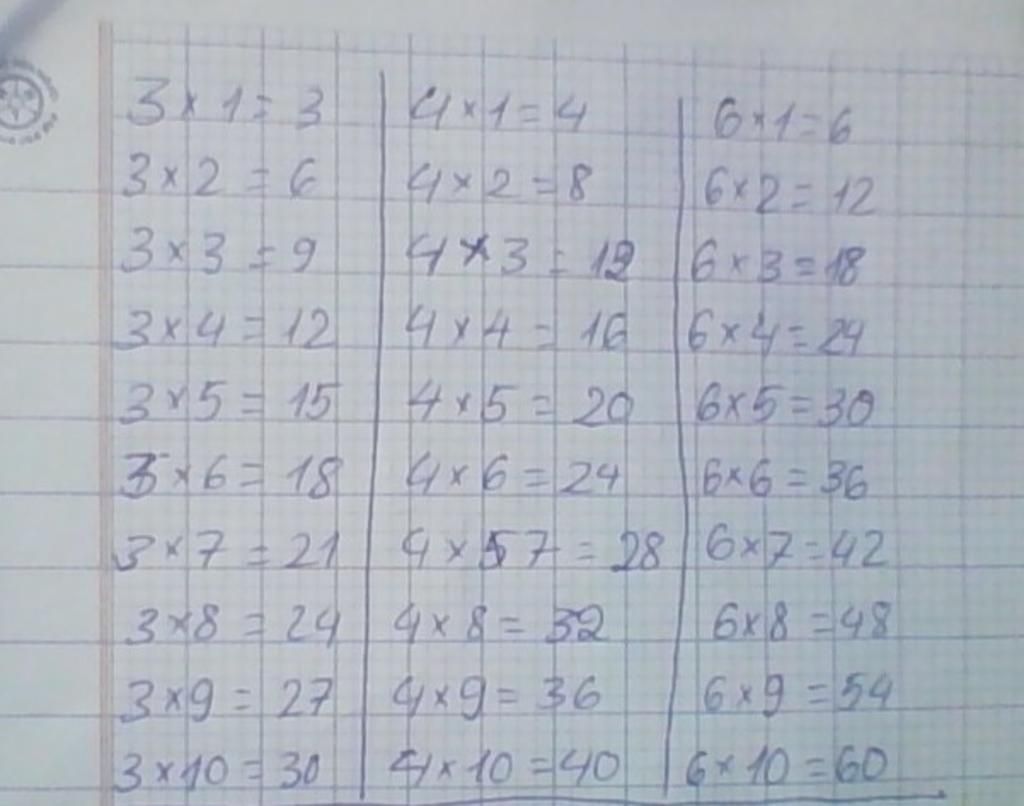 3 × 1 = 3
3 × 2 = 6
3 × 3 = 9
3 × 4 = 12
3 × 5 = 15
3 × 6 = 18
3 × 7 = 21
3 × 8 = 24
3 × 9 = 27
3 × 10 = 30
4 × 1 = 4
4 × 2 = 8
4 × 3 = 12
4 × 4 = 16
4 × 5 = 20
4 × 6 = 24
4 × 7 = 28
4 × 8 = 32
4 × 9 = 36
4 × 10 = 40
6 × 1 = 6
6 × 2 = 12
6 × 3 = 18
6 × 4 = 24
6 × 5 = 30
6 × 6 = 36
6 × 7 = 42
6 × 8 = 48
6 × 9 = 54
6 × 10 = 60